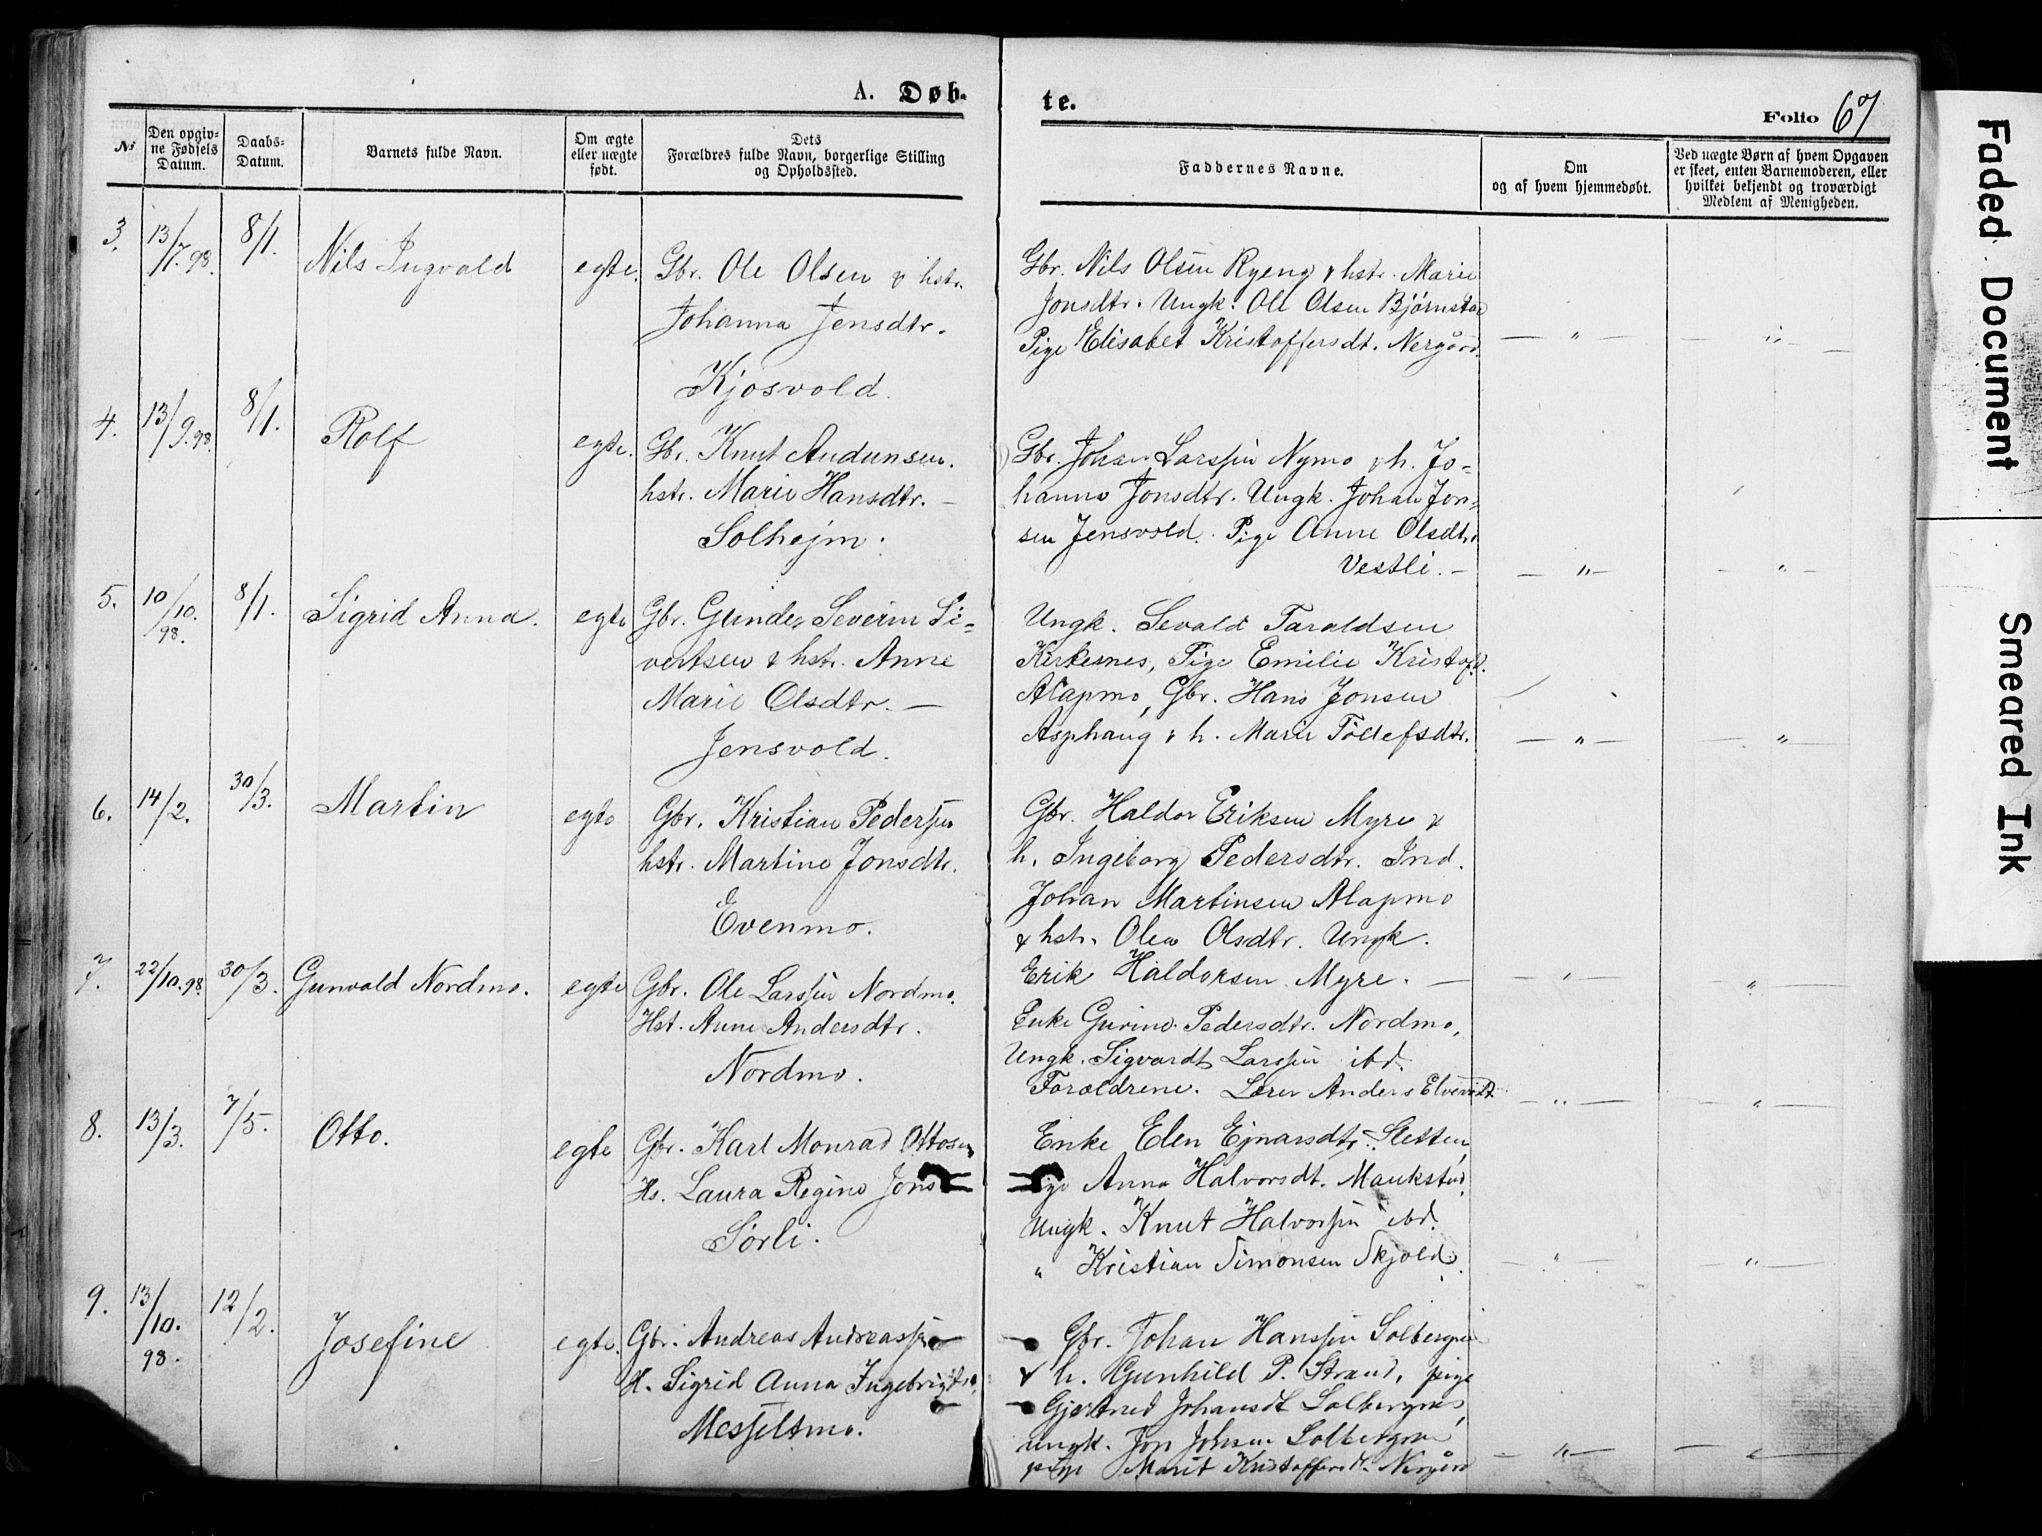 A. Døb-
te.
Folio 67
№
Den opgiv-
ne Fødsels
Datum.
Daabs-
Datum.
Barnets fulde Navn.
Om ægte
eller uægte
født.
Dets
Forældres fulde Navn, borgerlige Stilling
og Opholdssted.
Faddernes Navne.
Om
og af hvem hjemmedøbt.
Ved uægte Børn af hvem Opgaven
er skeet, enten Barnemoderen, eller
hvilket bekjendt og troværdigt
Medlem af Menigheden.
3. 13/7.98. 8/1. Nils Ingvald egte. Gbr. Ole Olsen & hstr.
Johanna Jensdtr.
Kjosvold.
Gbr. Nils Olsen Ryeng & hstr. Marie
Jonsdtr. Ungk. Ole Olsen Bjørnstad
Pige Elisabet Kristoffersdt. Nergård.
4. 13/9.98. 8/1. Rolf egte. Gbr. Knut Audunsen.
hstr. Marie Hansdtr. —
Solhejm.
Gbr. Johan Larssen Nymo & h. Jo-
hanna Jonsdtr. Ungk. Johan Jon-
sen Jensvold. Pige Anne Olsdtr.
Vestli. —
5. 10/10.98. 8/1. Sigrid Anna. egte Gbr. Gunder Severin Si-
vertsen & hstr. Anne
Marie Olsdtr. —
Jensvold.
Ungk. Sevald Taraldsen
Kirkesnes, Pige Emilie Kristofd.
Alapmo, Gbr. Hans Jonsen
Asphaug & h. Marie Tollefsdtr.
6. 14/2. 30/3. Martin egte Gbr. Kristian Pedersen
hstr. Martine Jonsdtr.
Evenmo.
Gbr. Haldor Eriksen Myre &
h. Ingeborg Pedersdtr. Ind.
Johan Martinsen Alapmo
& hstr. Olea Olsdtr. Ungk.
Erik Haldorsen Myre. —
7. 22/10.98. 30/3. Gunvald Nordmo. egte Gbr. Ole Larssen Nordmo.
Hst. Anne Andersdtr.
Nordmo.
Enke Gurine Pedersdtr. Nordmo,
Ungk. Sigvardt Larssen ibd.
Forældrene. Lærer Anders Elvevold
8. 13/3. 7/5. Otto. egte Gbr. Karl Monrad Ottosen
Hs. Laura Regine Jons
Sørli.
Enke Elen Ejnarsdtr. Sletten,
Pige Anna Halvorsdt. Maukstad,
Ungk. Knut Halvorsen ibd.
" Kristian Simonsen Skjold.
9. 13/10.98. 12/2. Josefine egte. Gbr. Andreas Andreassen
H. Sigrid Anna Ingebrigtsd.
Messeltmo.
Gbr. Johan Hanssen Solbergnes
& h. Gunhild P. Strand, pige
Gjertrud Johansdt Solbergnes,
ungk. Jon Johnsen Solbergnes
pige Marit Kristoffersdt. Nergård
Faded Document
Smeared Ink